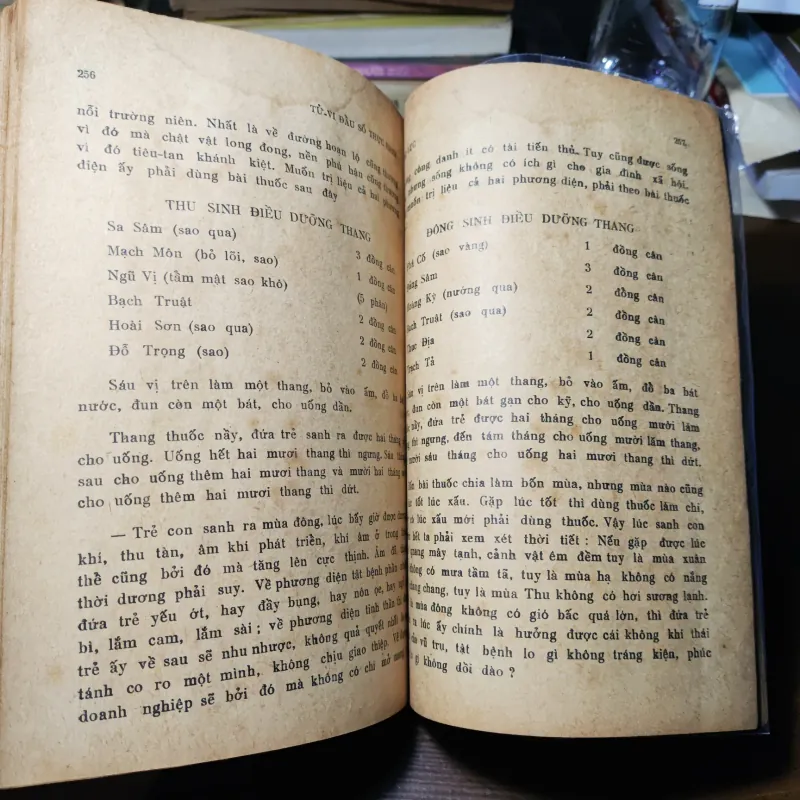 256
TỬ-VI ĐẦU SỐ THỰC
nỗi trường niên. Nhất là về đường hoạn lộ công thương,
vì đó mà chật vật long đong, nền phú hậu cũng
vì đó tiêu-tan khánh kiệt. Muốn trị liệu cả hai phương
diện ấy phải dùng bài thuốc sau đây
THU SINH ĐIỀU DƯỠNG THANG
Sa Sâm (sao qua) 3 đồng cân
Mạch Môn (bỏ lõi, sao) 1 đồng cân
Ngũ Vị (tầm mật sao khô) (5 phân)
Bạch Truật 2 đồng cân
Hoài Sơn (sao qua) 2 đồng cân
Đỗ Trọng (sao) 2 đồng cân
Sáu vị trên làm một thang, bỏ vào ấm, đồ ba
nước, đun còn một bát, cho uống dần.
Thang thuốc nầy, đứa trẻ sanh ra được hai tháng
cho uống. Uống hết hai mươi thang thì ngưng. Sáu tháng
sau cho uống thêm hai mươi thang và mười hai tháng sau
cho uống thêm hai mươi thang thì dứt.
— Trẻ con sanh ra mùa đông, lúc bấy giờ được
khí, thu tàn, âm khí phát triển, khí âm ở trong
thể cũng bởi đó mà tăng lên cực thịnh. Âm
thời dương phải suy. Về phương diện tật bệnh phần
đứa trẻ yếu ớt, hay đầy bụng, hay nôn ọe, hay
bì, lắm cam, lắm sài; về phương diện tinh thần thì
trẻ ấy về sau sẽ nhu nhược, không quả quyết nhất
tánh co ro một mình, không chịu giao thiệp. Về
doanh nghiệp sẽ bởi đó mà không có chí mở
257
công danh ít có tài tiến thủ. Tuy cũng được sống
nhưng sống không có ích gì cho gia đình xã hội.
muốn trị liệu cả hai phương diện, phải theo bài thuốc
ĐÔNG SINH ĐIỀU DƯỠNG THANG
Cố (sao vàng) 1 đồng cân
Sâm 3 đồng cân
Kỳ (nướng qua) 2 đồng cân
Bạch Truật (sao qua) 2 đồng cân
Thục Địa 2 đồng cân
Trạch Tả 1 đồng cân
vị trên làm một thang, bỏ vào ấm, đồ ba bát
đun còn một bát gạn cho kỹ, cho uống dần. Thang
nầy, đứa trẻ được hai tháng cho uống mười lăm
thì ngưng, đến tám tháng cho uống mười lăm thang,
mười sáu tháng cho uống hai mươi thang thì dứt.
bài thuốc chia làm bốn mùa, nhưng mùa nào cũng
lúc tốt lúc xấu. Gặp lúc tốt thì dùng thuốc làm chi,
có lúc xấu mới phải dùng thuốc. Vậy lúc sanh con
ta phải xem xét thời tiết: Nếu gặp được lúc
quang mây tạnh, cảnh vật êm đềm tuy là mùa xuân
không có mưa tầm tã, tuy là mùa hạ không có nắng
chang chang, tuy là mùa Thu không có hơi sương lạnh.
là mùa đông không có gió bấc quá lớn, thì đứa trẻ
ra lúc ấy chính là hưởng được cái không khí thái
của vũ trụ, tật bệnh lo gì không tráng kiện, phúc
gì không dồi dào ?